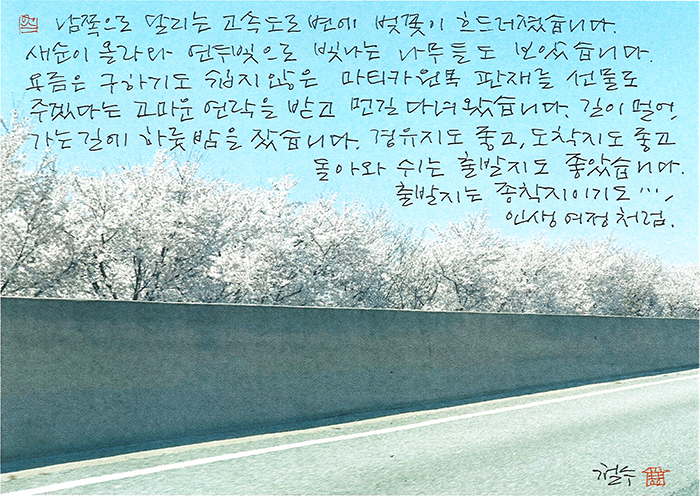 남쪽으로 달리는 고속도로변에 벚꽃이 흐드러졌습니다.
새순이 올라와 연두빛으로 빛나는 나무들도 보았습니다.
요즘은 구하기도 쉽지 않은 마티카 원목 판재를 선물로
주겠다는 고마운 연락을 받고 먼길 다녀왔습니다. 길이 멀어,
가는길에 하룻밤을 잤습니다. 경유지도 좋고, 도착지도 좋고
돌아와 쉬는 출발지도 좋았습니다.
출발지는 종착지이기도 …,
인생 여정처럼.
철수